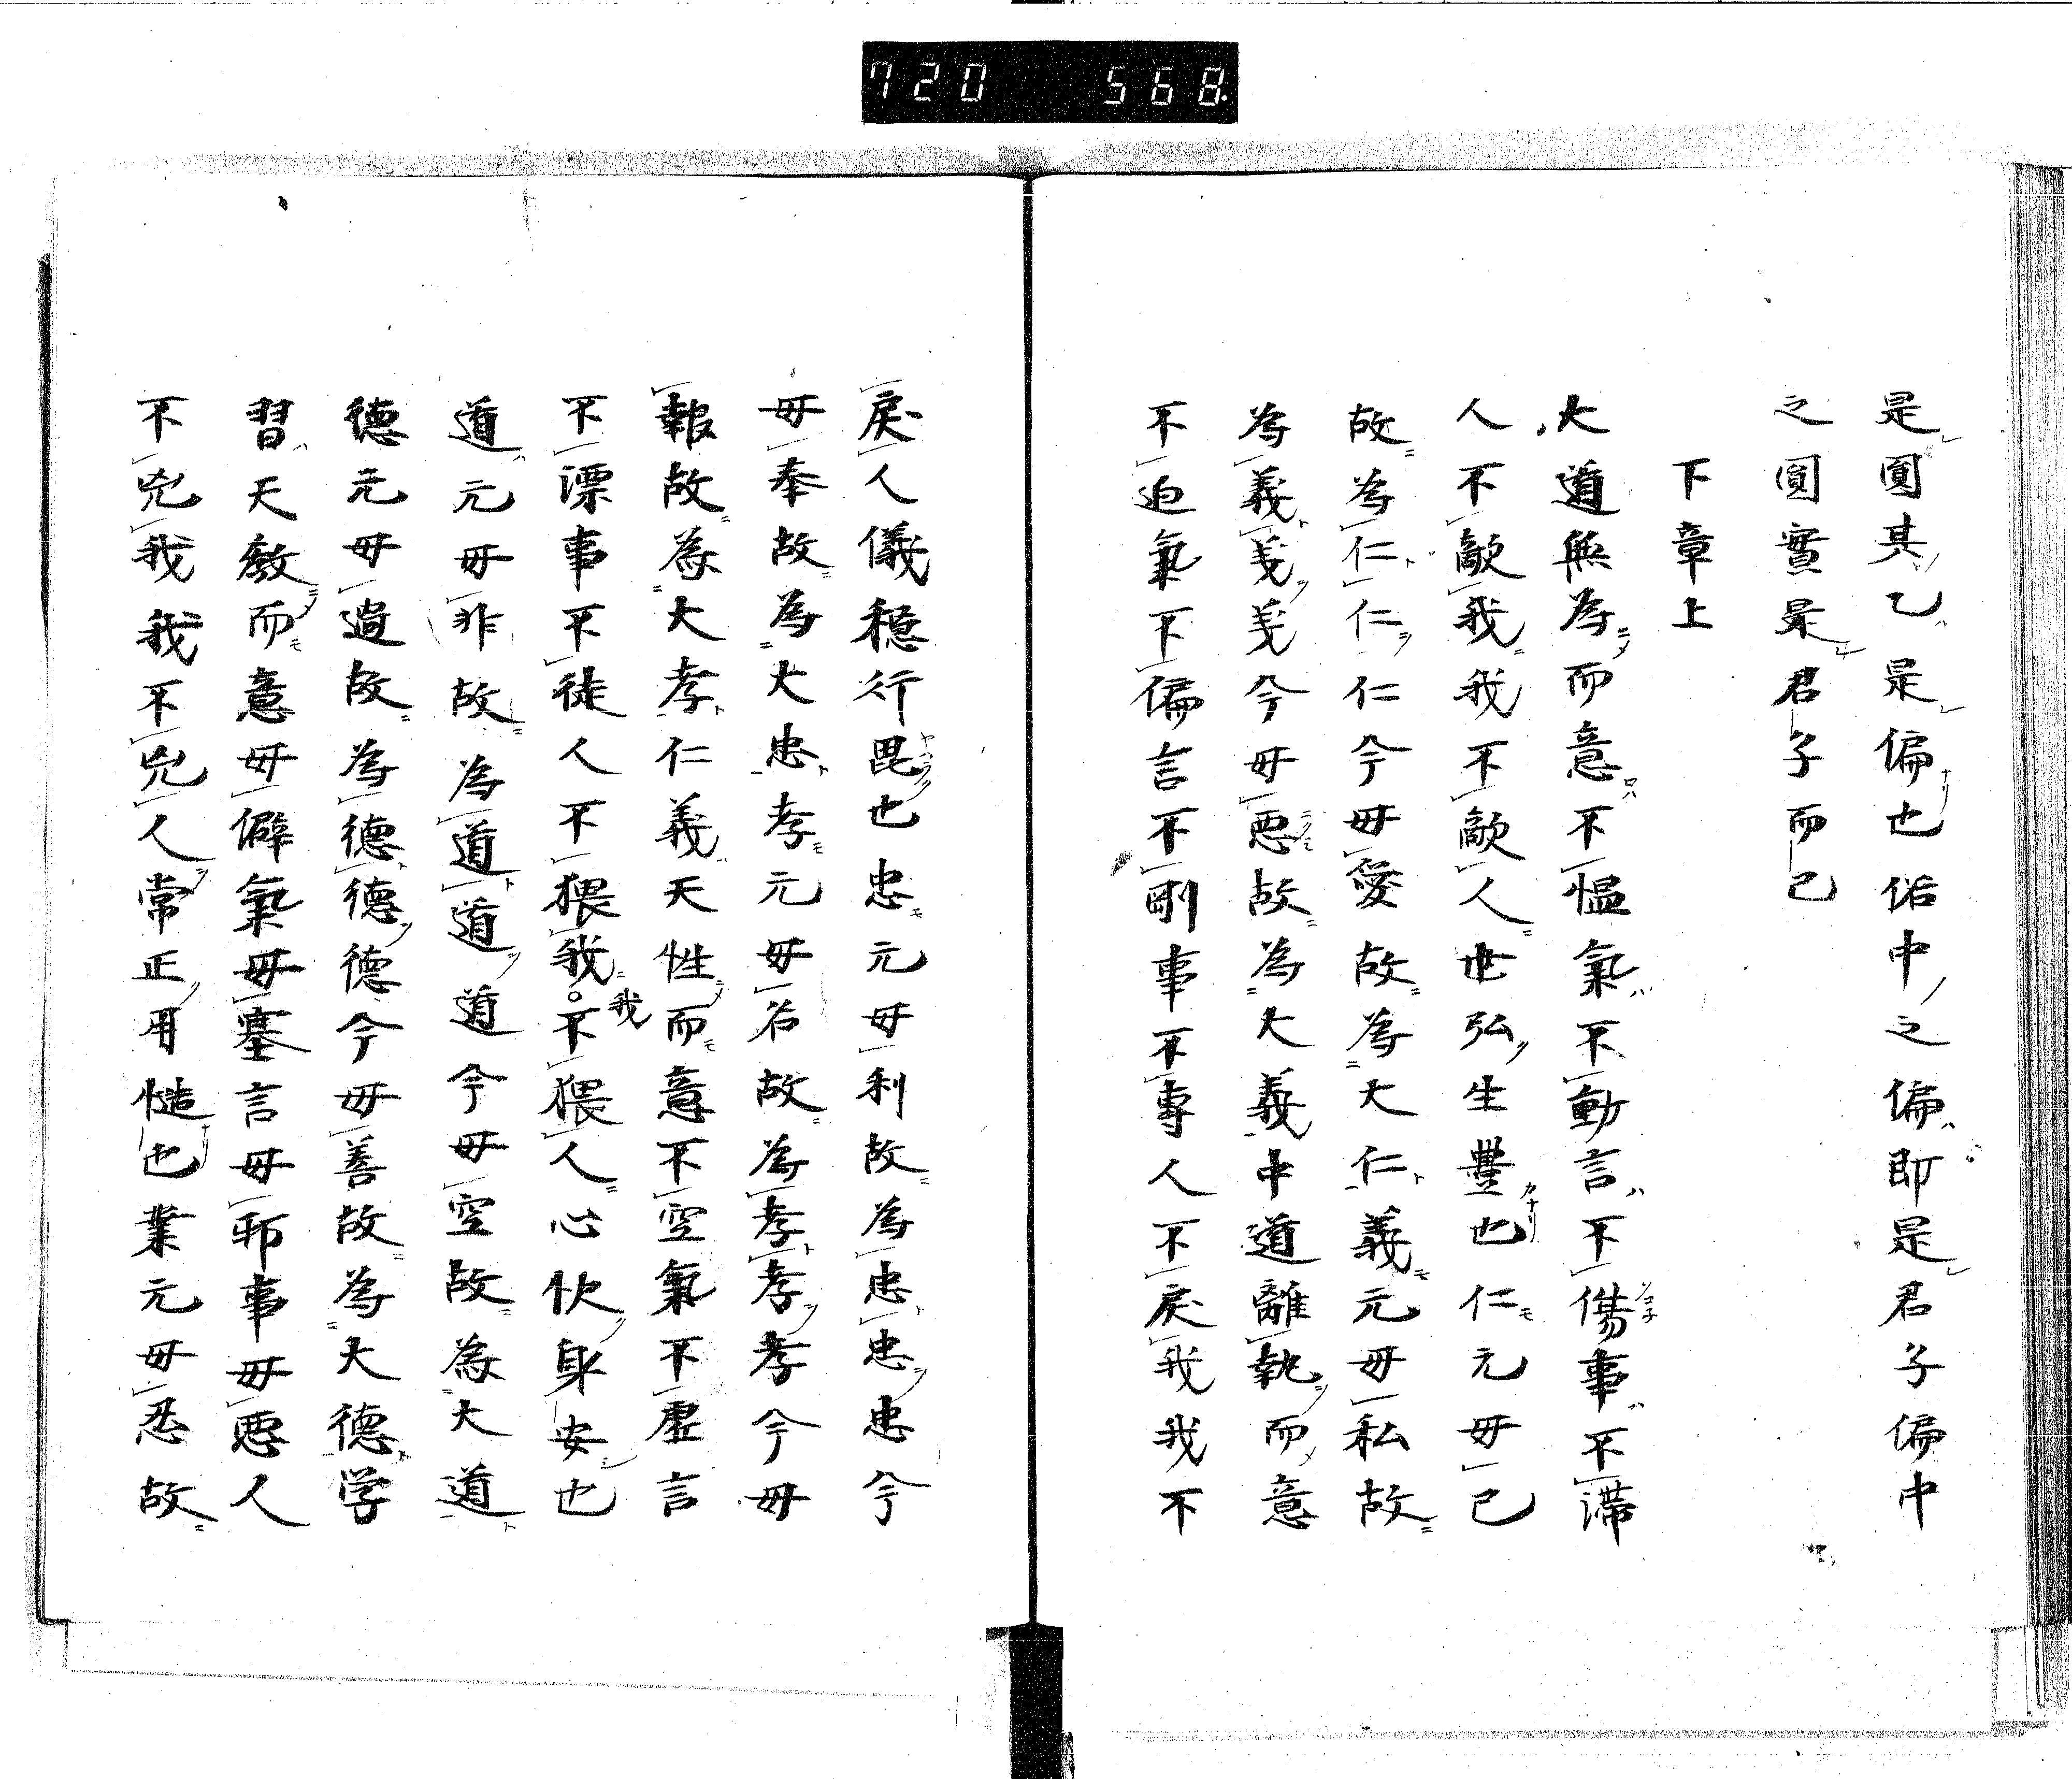 720 568
是圓其乙是偏也佸中之偏即是君子偏中
之圓實是君子而已
下章上
大道無為而意不慍氣不動言不傷事不滯
人不敵我我不敵人世弘生豐也仁元毋已
故為仁仁仁今毋愛故為大仁義元毋私故
為義義義今毋惡故為大義中道離執而意
不迫氣不偏言不剛事不專人不戾我我不
戾人儀穩行毘也忠元毋利故為忠忠忠今
毋奉故為大忠孝元毋名故為孝孝孝今毋
報故為大孝仁義天性而意不空氣不虛言
不漂事不徒人不猥我我不猥人心快身安也
道元毋非故為道道道今毋空故為大道
德元毋過故為德德德今毋善故為大德学
習天教而意毋僻氣毋塞言毋邪事毋惡人
不兇我我不兇人常正用愭也業元毋忍故